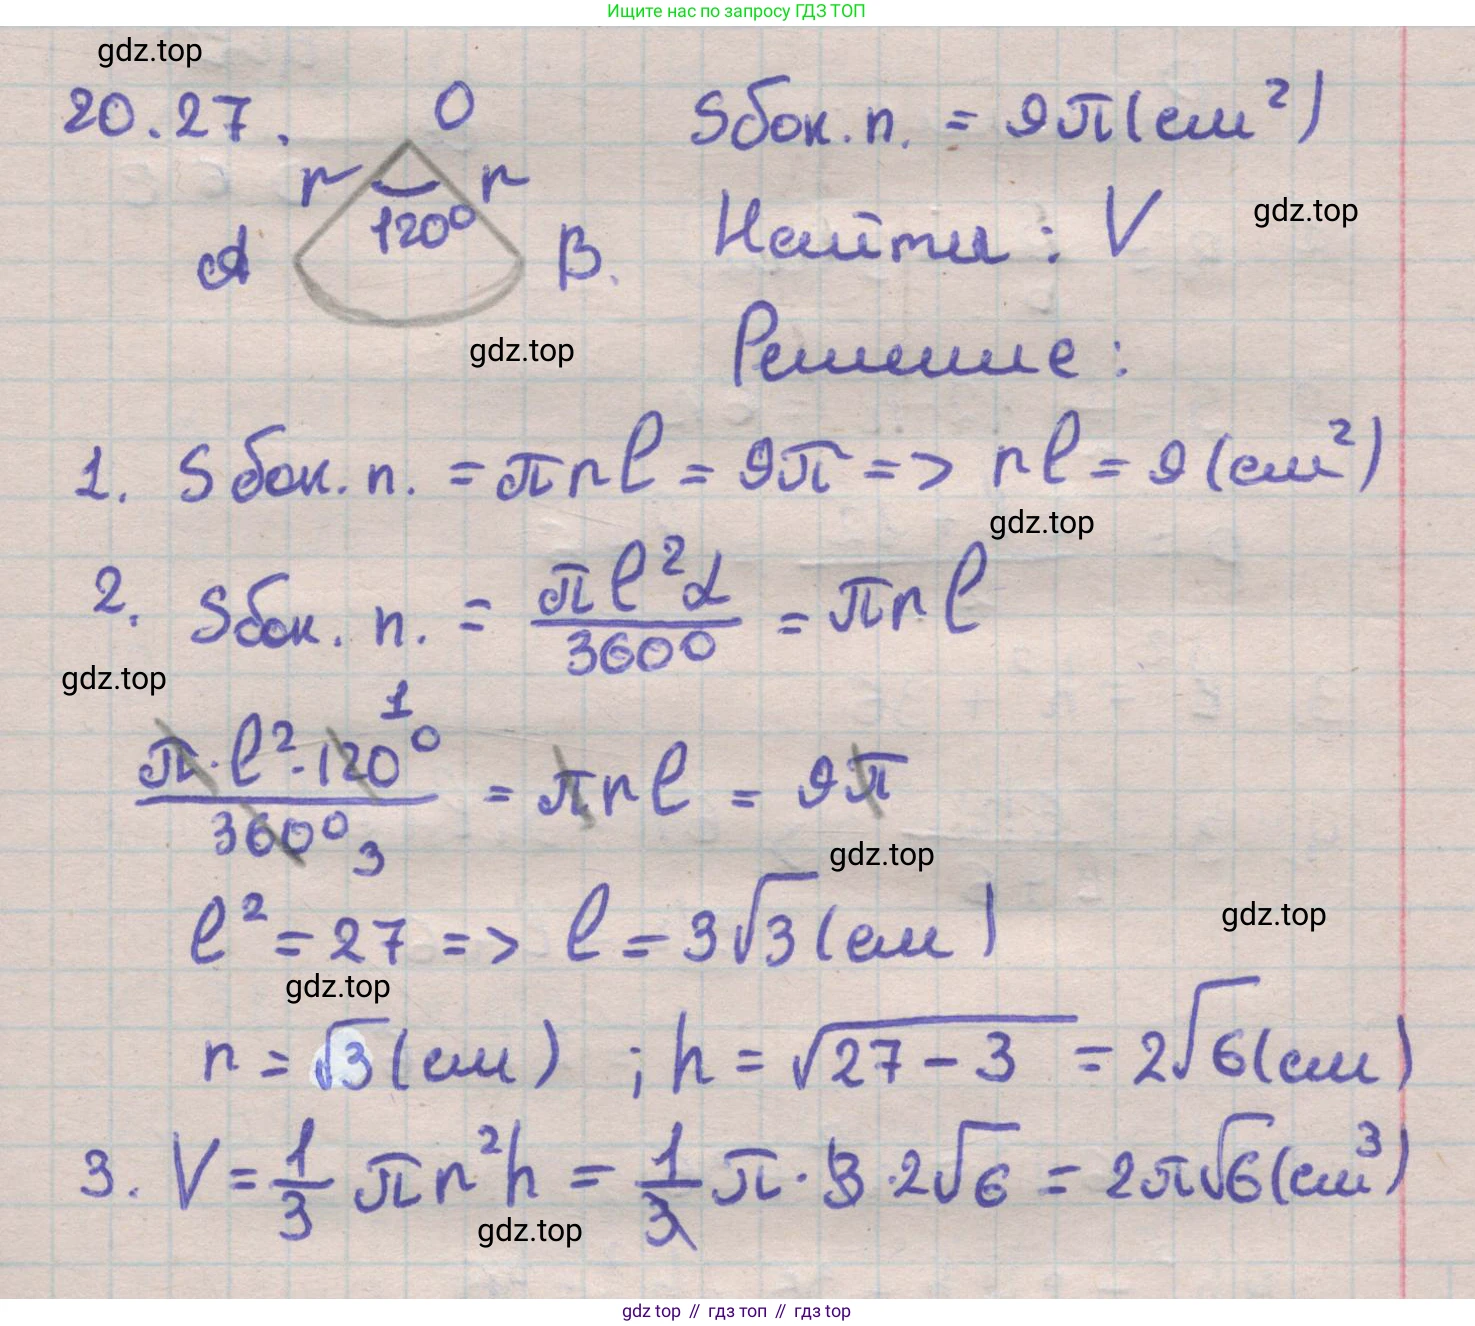 Ищите нас по запросу ГДЗ ТОП
gdz.top
20.27.
O
Sбок.п. = 9π(см²)
r
r
120⁰
A
B.
Найти: V
gdz.top
gdz.top
Решение:
1. Sбок.п. = πrl = 9π => rl = 9(см²)
gdz.top
2. Sбок.п. = πl²α/360⁰ = πrl
gdz.top
π·l²·120⁰ 1/360⁰ 3 = πrl = 9π
gdz.top
l² = 27 => l = 3√3(см)
gdz.top
gdz.top
r = √3(см) ; h = √27-3 = 2√6(см)
3. V = 1/3 πr²h = 1/3 π·3·2√6 = 2π√6(см³)
gdz.top
gdz top // гдз топ // гдз top